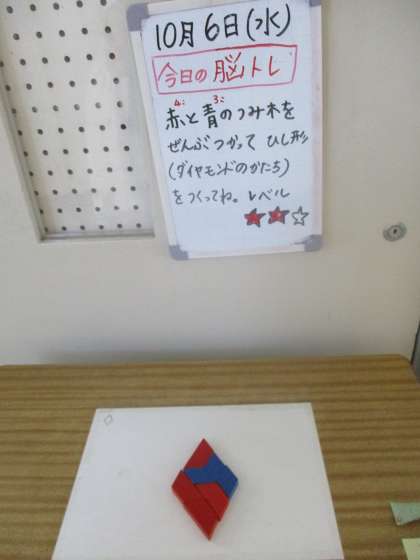 10月6日(水)
今日の脳トレ
4こ 3こ
赤と青のつみ木を
ぜんぶつかって ひし形
(ダイヤモンドのかたち)
をつくってね。レベル
★★☆